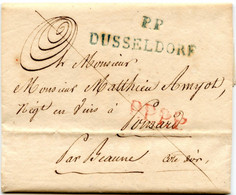 P.P
DUSSELDORF
A Monsieur
Monsieur Matthieu Amyot,
Négt en Vins à
Pomard
Par Beaune
Côte d'or